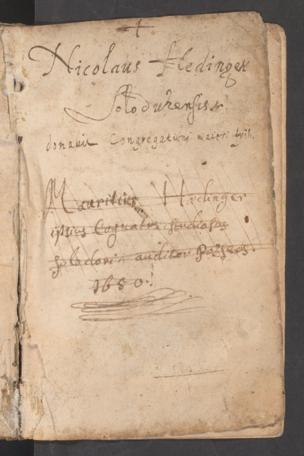 Nicolaus Hedinger
Solodurensis
donavit Congregationi maiori
Mauritius Hedinger
ipsius Cognatus studiosus
auditor
1680.